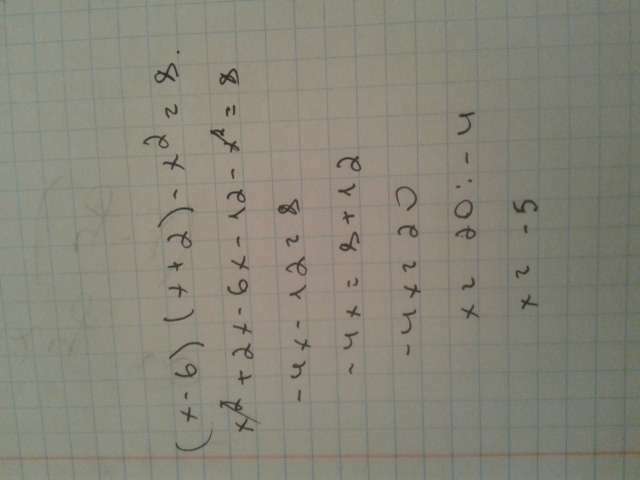 (x-6)(x+2)-x²=8.
x²+2x-6x-12-x²=8
-4x-12=8
-4x=8+12
-4x=20
x=20:-4
x=-5